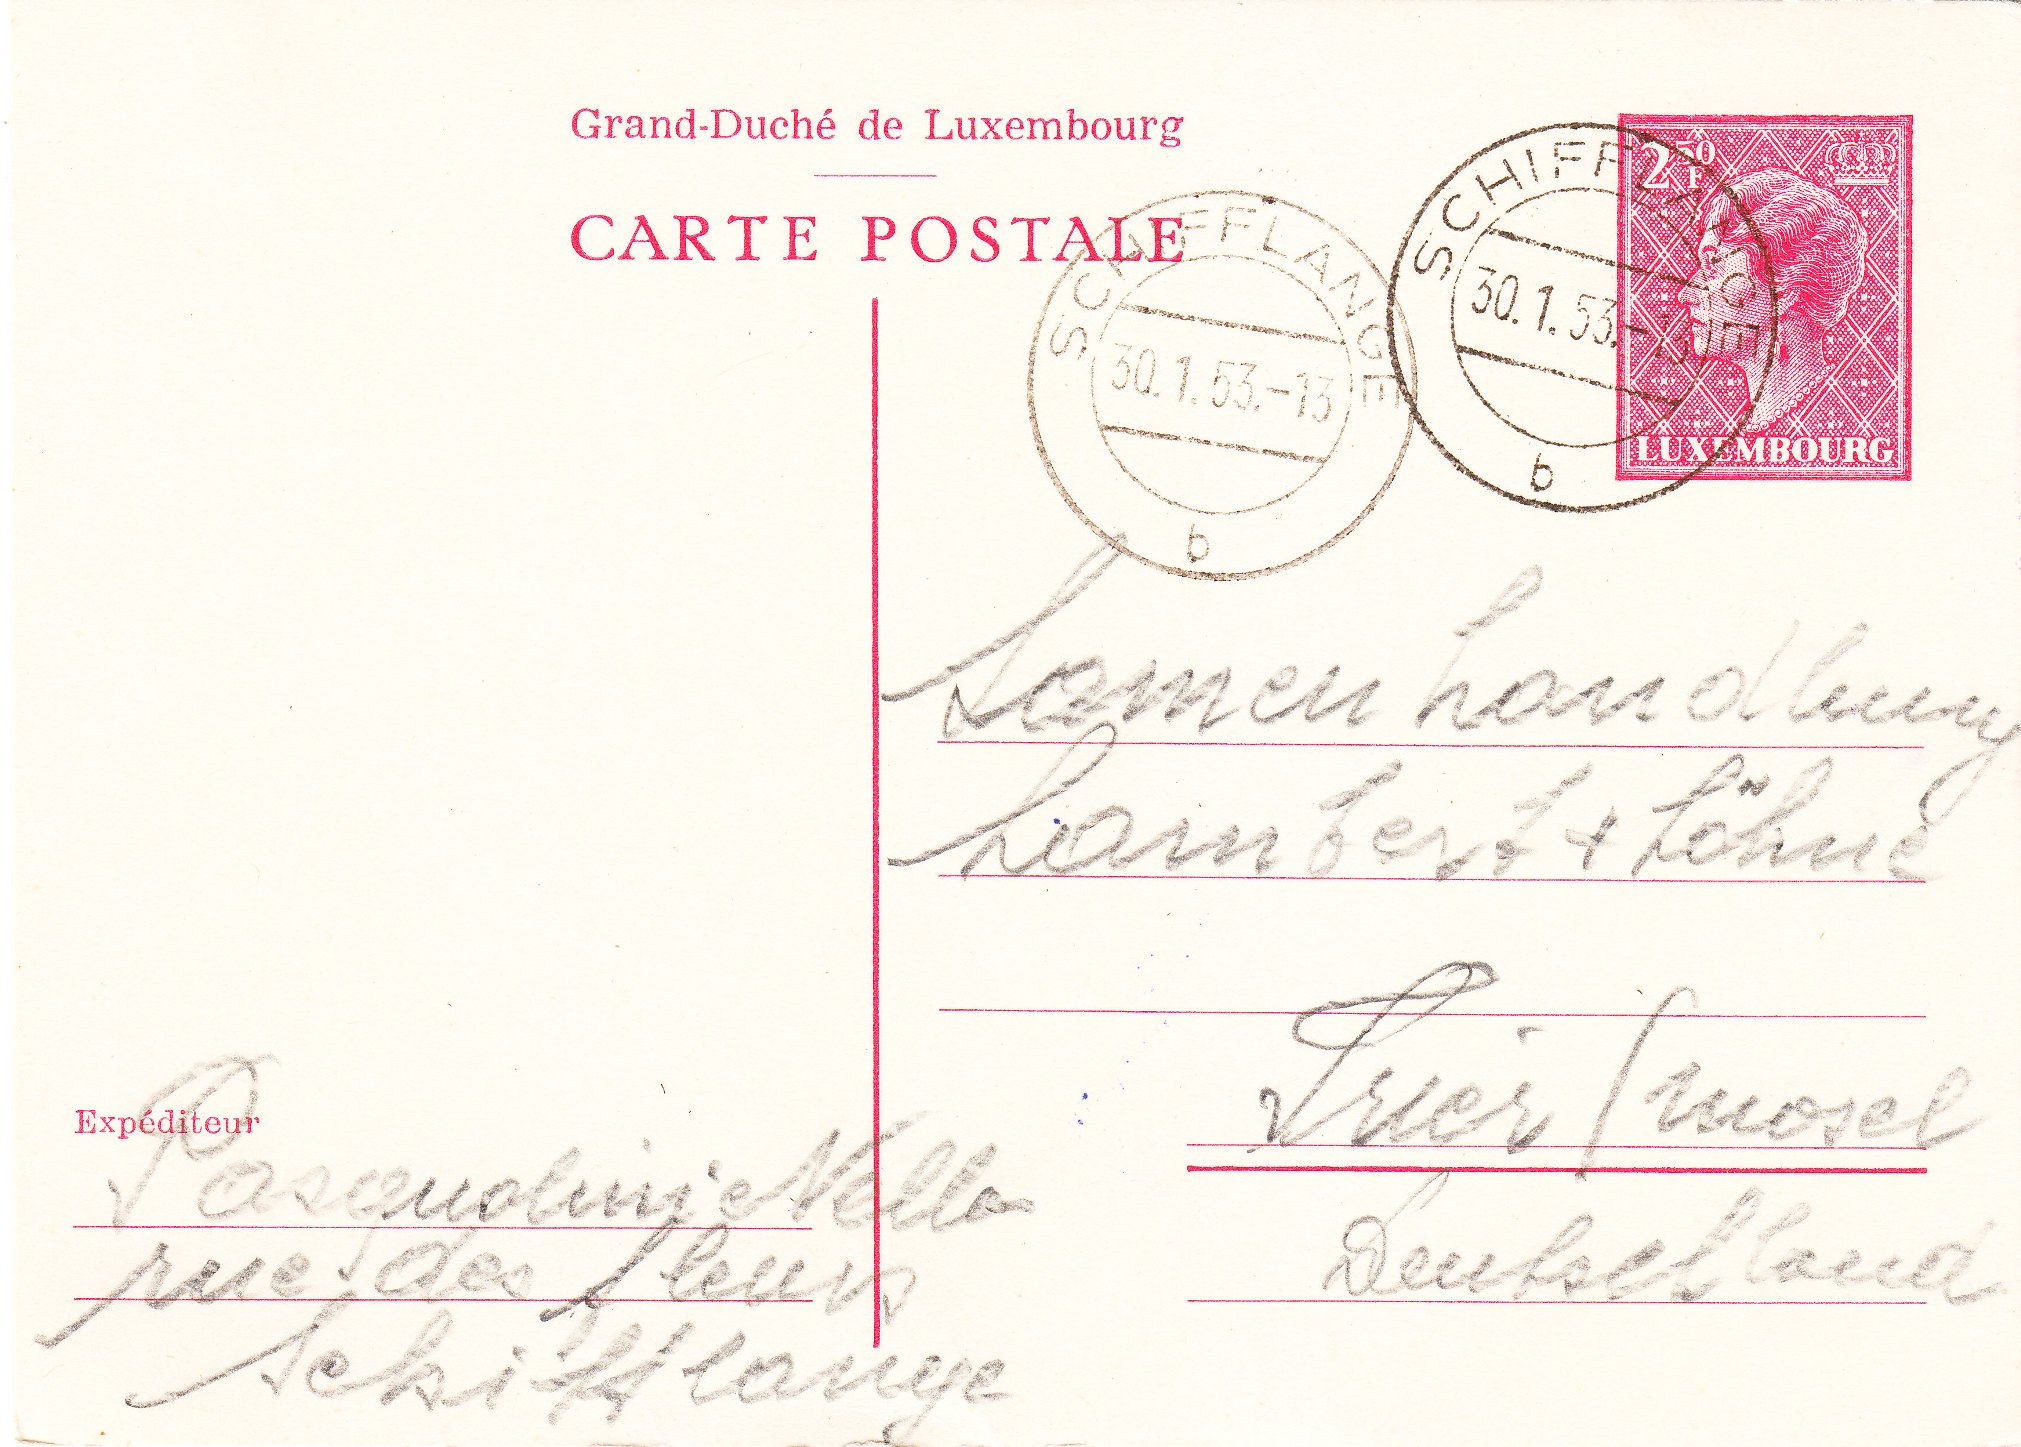 Grand-Duché de Luxembourg
CARTE POSTALE
2 50 F
LUXEMBOURG
SCHIFFLANGE
30.1.53.-13
b
SCHIFFLANGE
30.1.53.-13
b
Samenhandlung
Lambert + Söhne
Trier / Mosel
Deutschland
Expéditeur
Pasqualini Nella
rue des fleurs
Schifflange